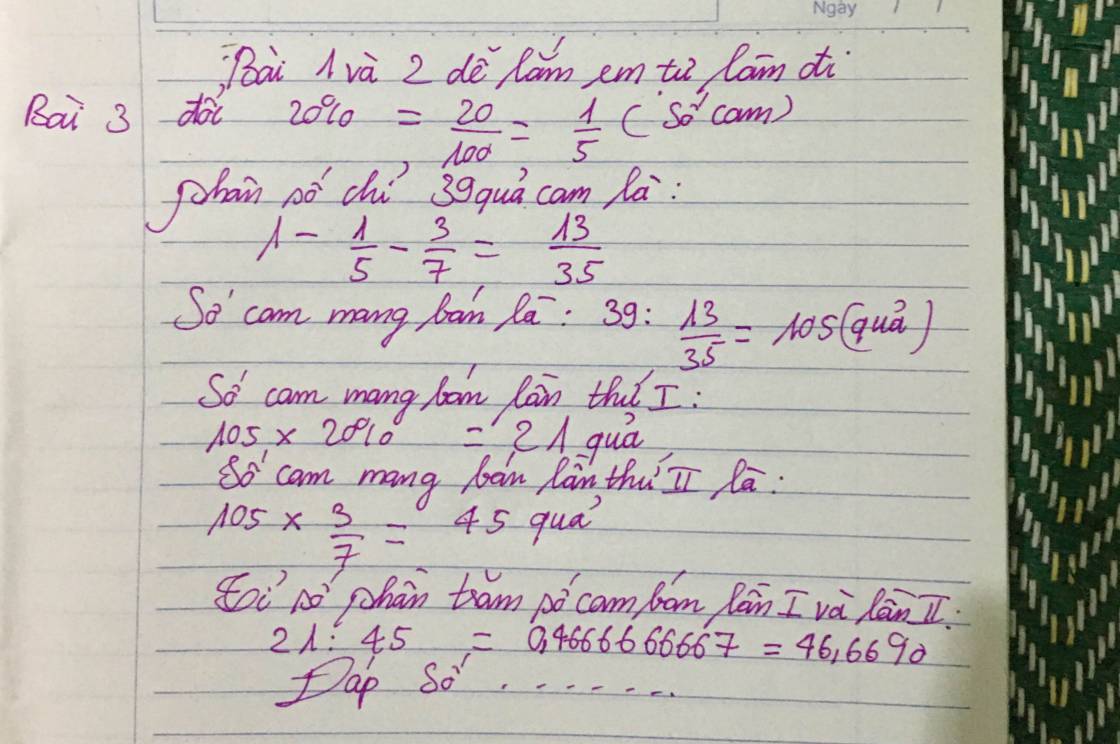 Ngày / /
Bài 1 và 2 dễ lắm em tự làm đi
Bài 3 đổi 20% = 20/100 = 1/5 (số cam)
phân số chỉ 39 quả cam là:
1 - 1/5 - 3/7 = 13/35
Số cam mang bán là: 39: 13/35 = 105 (quả)
Số cam mang bán lần thứ I:
105 x 20% = 21 quả
Số cam mang bán lần thứ II là:
105 x 3/7 = 45 quả
Tỉ số phần trăm số cam bán lần I và lần II:
21: 45 = 0,4666666667 = 46,66%
Đáp số ........